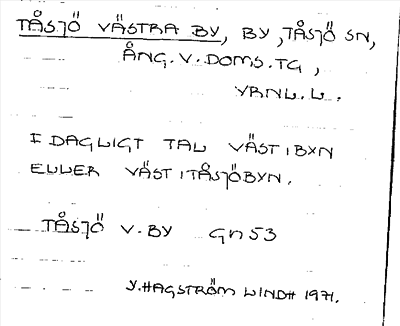 TÅSJÖ VÄSTRA BY, BY, TÅSJÖ SN,
ÅNG. V. DOMS. TG,
I DAGLIGT TAL VÄSTIBYN
ELLER VÄSTITÅSJÖBYN.
TÅSJÖ V. BY Gn 53
Y. HAGSTRÖM LINDH 1971.